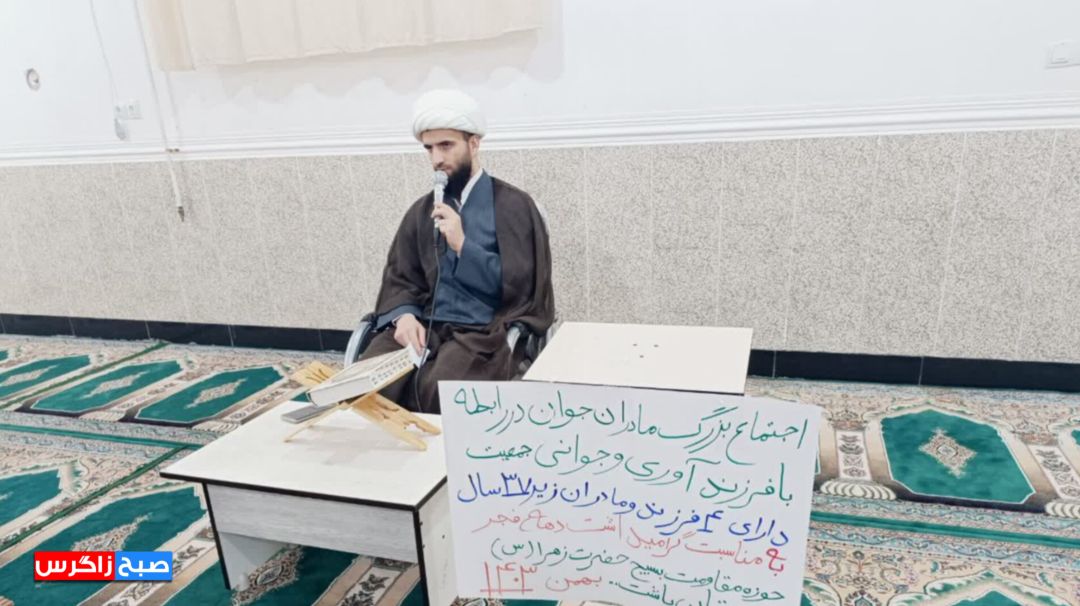 اجتماع بزرگ مادران جوان در رابطه
با فرزند آوری و جوانی جمعیت
دارای ۴ فرزند و مادران زیر ۳۷ سال
به مناسبت گرامیداشت دهه فجر
حوزه مقاومت بسیج حضرت زهرا (س)
باشت.. بهمن ۱۴۰۳
صبح زاگرس